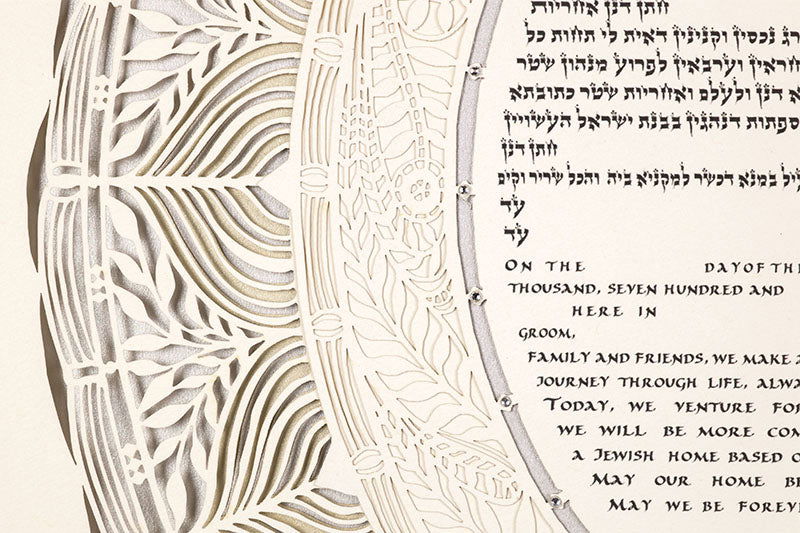 חתן דנן אחריות
רג נכסין וקנינין דאית לי תחות כל
חראין וערבאין לפרוע מנהון שטר
א דנן ולעלם ואחריות שטר כתובתא
ספתות דנהגין בבנת ישראל העשויין
חתן דנן
יל במנא דכשר למקניא ביה והכל שריר וקים
עד
עד
ON THE DAY OF THE
THOUSAND, SEVEN HUNDRED AND
HERE IN
GROOM,
FAMILY AND FRIENDS, WE MAKE A
JOURNEY THROUGH LIFE, ALWA
TODAY, WE VENTURE FOR
WE WILL BE MORE COM
A JEWISH HOME BASED O
MAY OUR HOME BE
MAY WE BE FOREVE